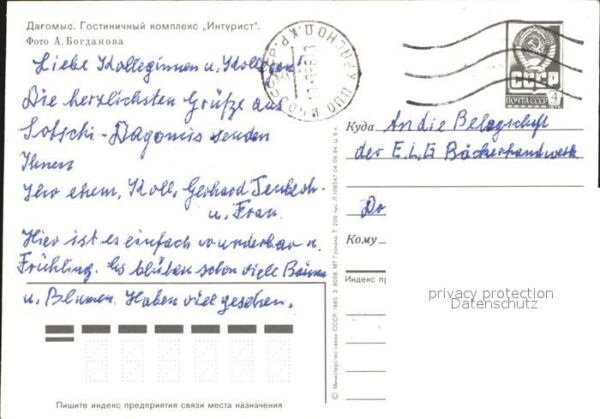 Дагомыс. Гостиничный комплекс „Интурист".
Фото А. Богданова
Liebe Kolleginnen u. Kollegen!
Die herzlichsten Grüße aus
Sotschi-Dagomis senden
Ihnen
Ihr ehem. Koll. Gerhard
u. Frau.
Hier ist es einfach wunderbar u.
Frühling. Es blühen schon viele Bäume
u. Blumen. Haben viel gesehen.
Пишите индекс предприятия связи места назначения
© Министерство связи СССР. 1985.
СССР
ПОЧТА СССР
4
Куда An die Belegschaft
der E L G Bäckerhandwerk
Кому
Индекс пр
privacy protection
Datenschutz